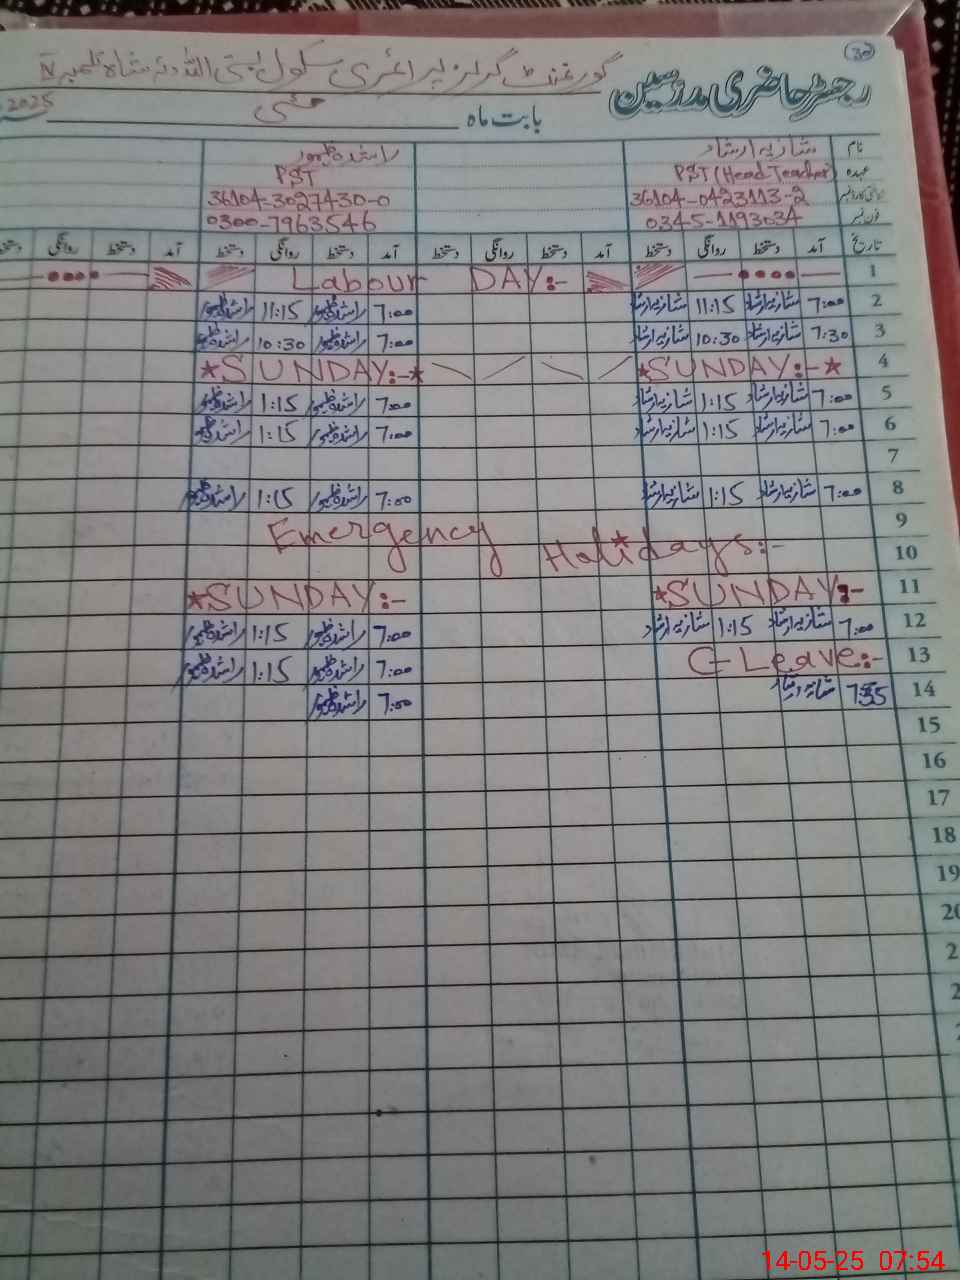 30
رجسٹر حاضری مدرسین گورنمنٹ گرلز پرائمری سکول بستی اللہ دتہ شاہ تلمبہ N
بابت ماہ مئی 2025
نام شازیہ ارشاد راشدہ ظہور
عہدہ PST (Head Teacher) PST
36104-0423113-2 36104-3027430-0
فون نمبر 0345-1193034 0300-7963546
تاریخ آمد دستخط روانگی دستخط آمد دستخط روانگی دستخط آمد دستخط روانگی دستخط آمد دستخط روانگی دستخط
1 Labour DAY:-
2 7:00 شازیہ ارشاد 11:15 شازیہ ارشاد 7:00 راشدہ ظہور 11:15 راشدہ ظہور
3 7:30 شازیہ ارشاد 10:30 شازیہ ارشاد 7:00 راشدہ ظہور 10:30 راشدہ ظہور
4 *SUNDAY:-* *SUNDAY:-*
5 7:00 شازیہ ارشاد 1:15 شازیہ ارشاد 7:00 راشدہ ظہور 1:15 راشدہ ظہور
6 7:00 شازیہ ارشاد 1:15 شازیہ ارشاد 7:00 راشدہ ظہور 1:15 راشدہ ظہور
7
8 7:00 شازیہ ارشاد 1:15 شازیہ ارشاد 7:00 راشدہ ظہور 1:15 راشدہ ظہور
9 Emergency
10 Holidays:-
11 *SUNDAY:- *SUNDAY:-
12 7:00 شازیہ ارشاد 1:15 شازیہ ارشاد 7:00 راشدہ ظہور 1:15 راشدہ ظہور
13 C-Leave:- 7:00 راشدہ ظہور 1:15 راشدہ ظہور
14 شازیہ ارشاد 7:00 راشدہ ظہور
15
16
17
18
19
20
14-05-25 07:54